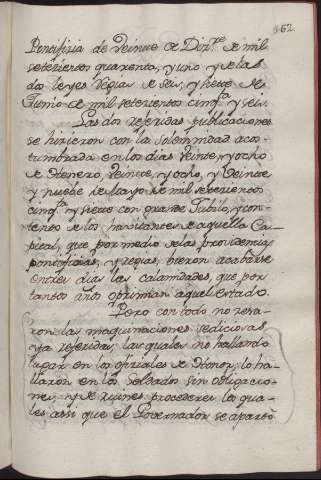 162.
Pontifizia de Veinte de Diz.e de mil
setezientos quarenta, y uno y de las
dos leyes regias de seis, y siete de
Junio de mil setezientos cinq.ta y seis.
Las dos referidas publicaciones
se hizieron con la solemnidad acos-
tumbrada en los dias Veinte, y ocho
de Henero, Veinte, y ocho, y Veinte
y nuebe de Mayo de mil setezientos
cinq.ta y siete con grande Jubilo, y con-
tento de los havitantes de aquella Ca-
pital, que por medio de las providencias
pontificias, y regias, vieron acabarse
en tres dias las calamidades, que por
tantos años oprimian aquel estado.
Pero con todo no zesa-
ron las maquinaciones sediciosas,
ya referidas, las quales no hallando
lugar en los ofiziales de Honor, lo ha-
llaron en los Soldados sin obligacio-
nes, y de ruines procederes los qua-
les assi que el Governador se apartò